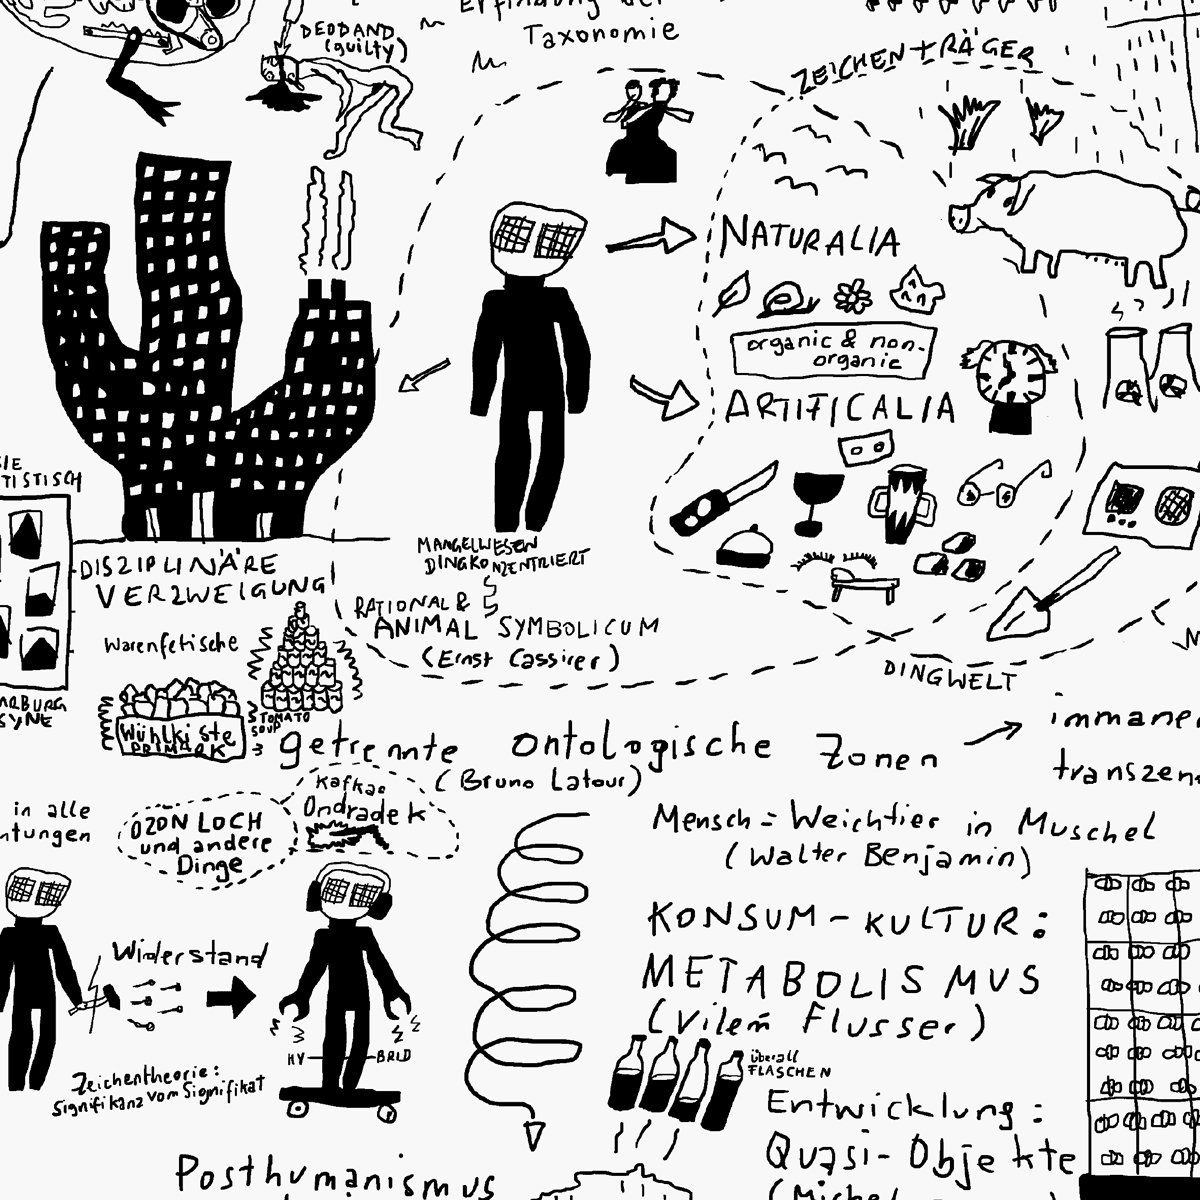 Erfindung der
Taxonomie
DEODAND
(guilty)
ZEICHENTRÄGER
NATURALIA
organic & non-
organic
ARTIFICALIA
TISTISCH
DISZIPLINÄRE
VERZWEIGUNG
MANGELWESEN
DINGKONZENTRIERT
RATIONAL &
ANIMAL SYMBOLICUM
(Ernst Cassirer)
DINGWELT
Warenfetische
Wühlkiste
PRIMARK
TOMATO
SOUP
getrennte ontologische Zonen
(Bruno Latour)
immanen
transzen
ARBURG
SYNE
in alle
htungen
OZONLOCH
und andere
Dinge
Kafkas
Ondradek
Mensch = Weichtier in Muschel
(Walter Benjamin)
KONSUM-KULTUR:
METABOLISMUS
(Vilém Flusser)
überall
FLASCHEN
Widerstand
HY BRID
Zeichentheorie:
Signifikanz vom Signifikat
Entwicklung:
Quasi-Objekte
(Michel
Posthumanismus